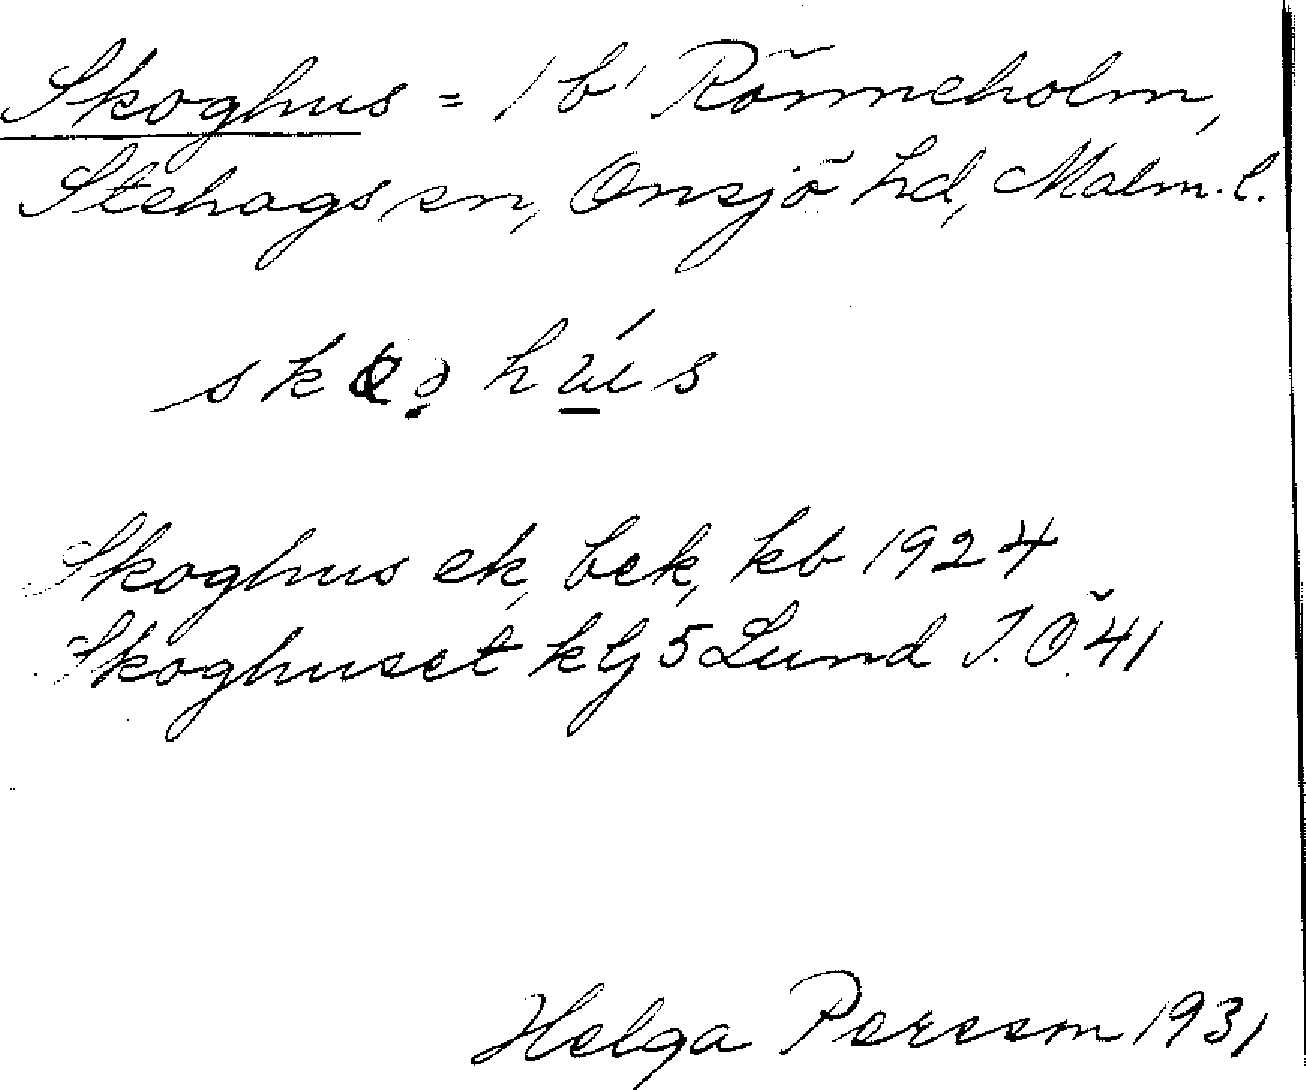 Skoghus = 1 b' Rönneholm,
Stehags sn, Onsjö hd, Malm. l.
Skoghus ek, bek, kb 1924
Skoghuset klj 5 Lund I. Ö 41
Helga Persson 1931